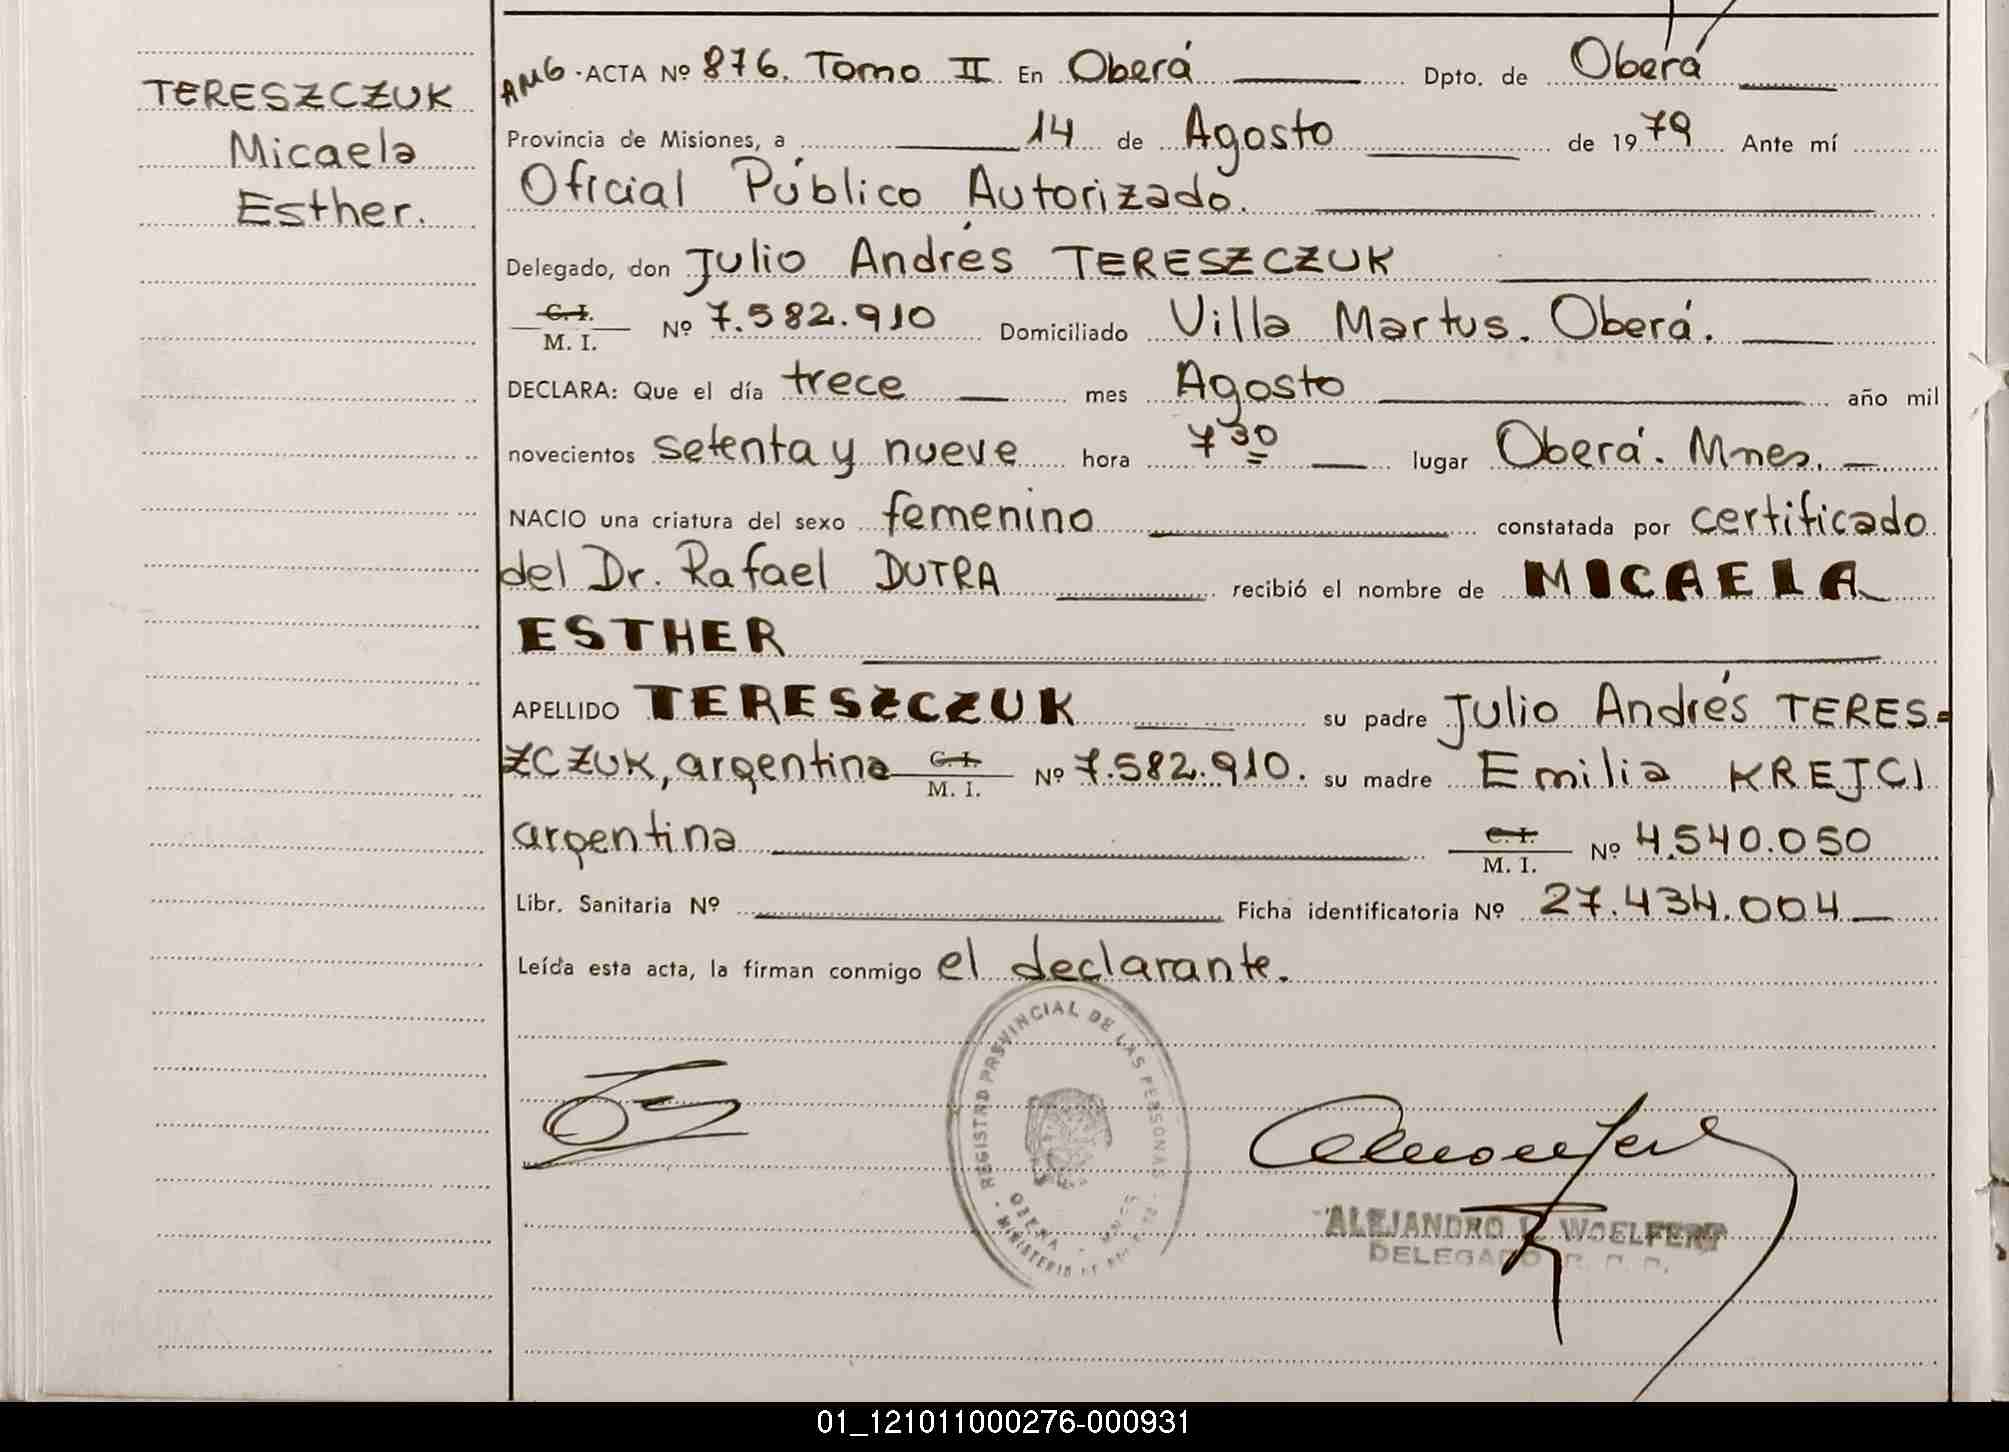 TERESZCZUK
Micaela
Esther.
AMG · ACTA Nº 876. Tomo II En Oberá Dpto. de Oberá
Provincia de Misiones, a 14 de Agosto de 1979 Ante mí
Oficial Público Autorizado.
Delegado, don Julio Andrés TERESZCZUK
C. I. M. I. Nº 7.582.910 Domiciliado Villa Martus. Oberá.
DECLARA: Que el día trece mes Agosto año mil
novecientos setenta y nueve hora 7 30 lugar Oberá. Mnes.
NACIO una criatura del sexo femenino constatada por certificado
del Dr. Rafael DUTRA recibió el nombre de MICAELA
ESTHER
APELLIDO TERESZCZUK su padre Julio Andrés TERES=
ZCZUK, argentino C. I. M. I. Nº 7.582.910. su madre Emilia KREJCI
argentina C. I. M. I. Nº 4.540.050
Libr. Sanitaria Nº Ficha identificatoria Nº 27.434.004
Leída esta acta, la firman conmigo el declarante.
REGISTRO PROVINCIAL DE LAS PERSONAS
OBERA - MNES
MINISTERIO DE
ALEJANDRO WOELFERT
DELEGADO R. P. P.
01_121011000276-000931